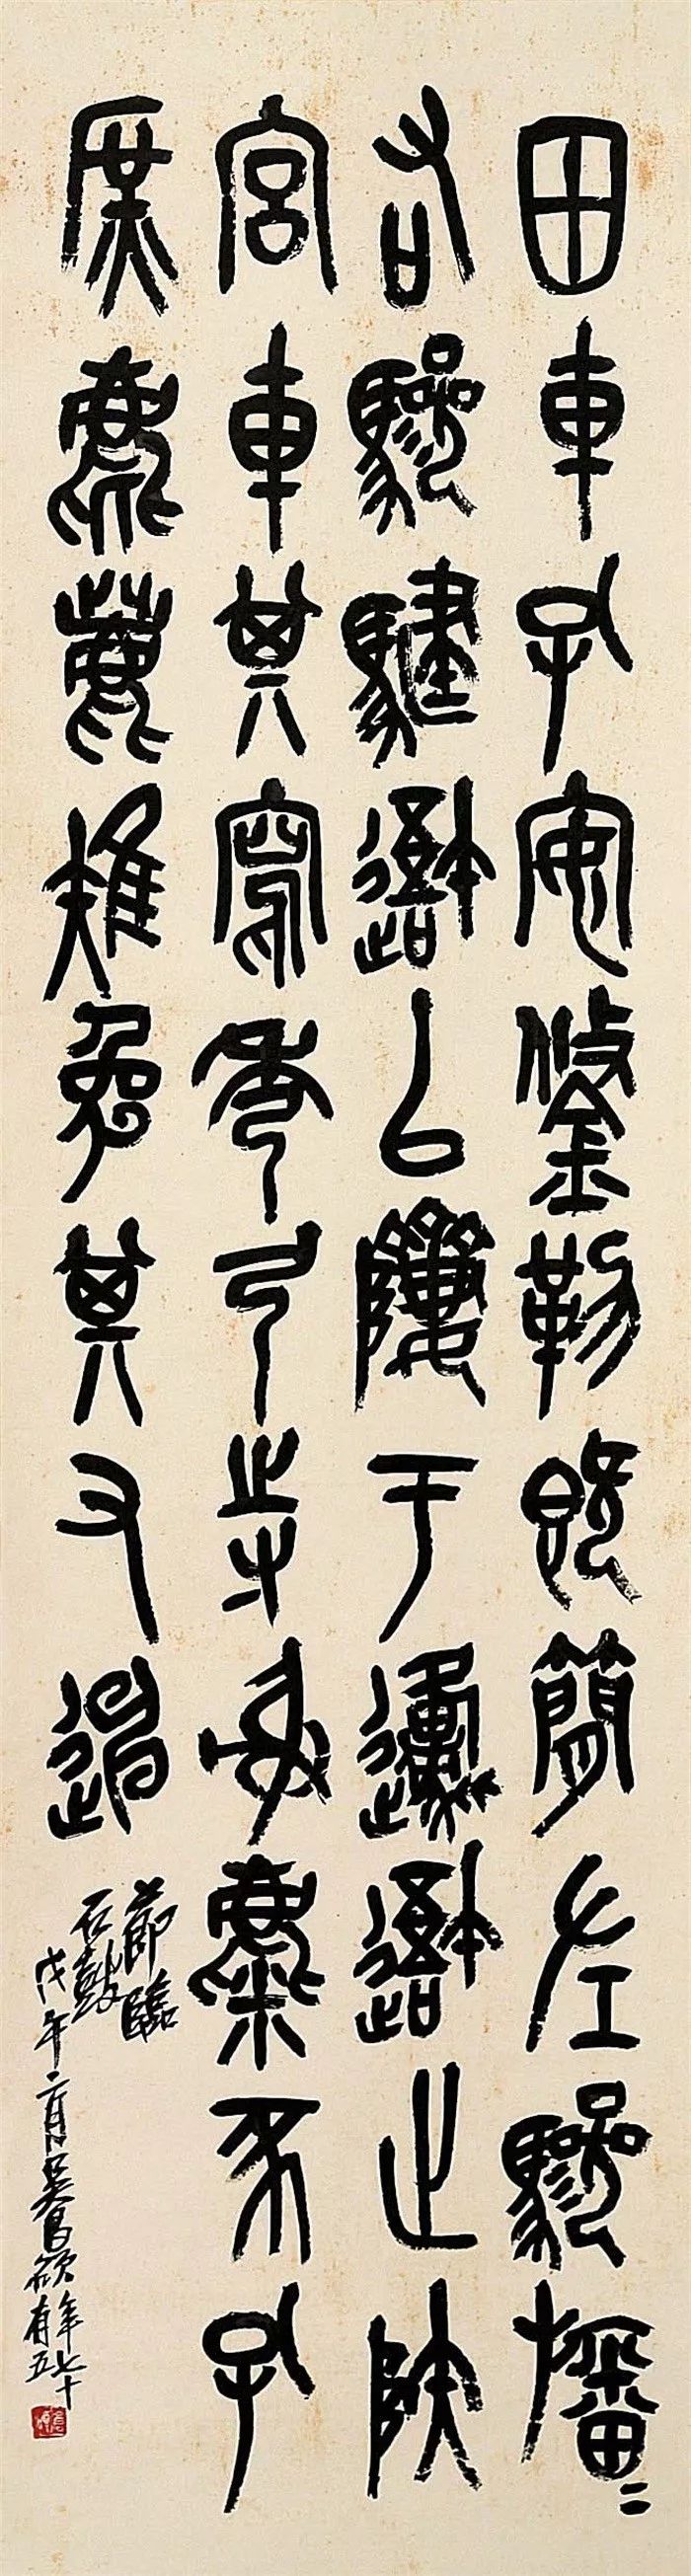 田車孔安鋚勒既簡左驂旛〻
右驂騝䢩以隮于邍䢩止陕
宮車其寫秀弓寺射麋豕孔
庶麀鹿雉兔其又
節臨
石鼓
戊午二月吳昌碩年七十有五